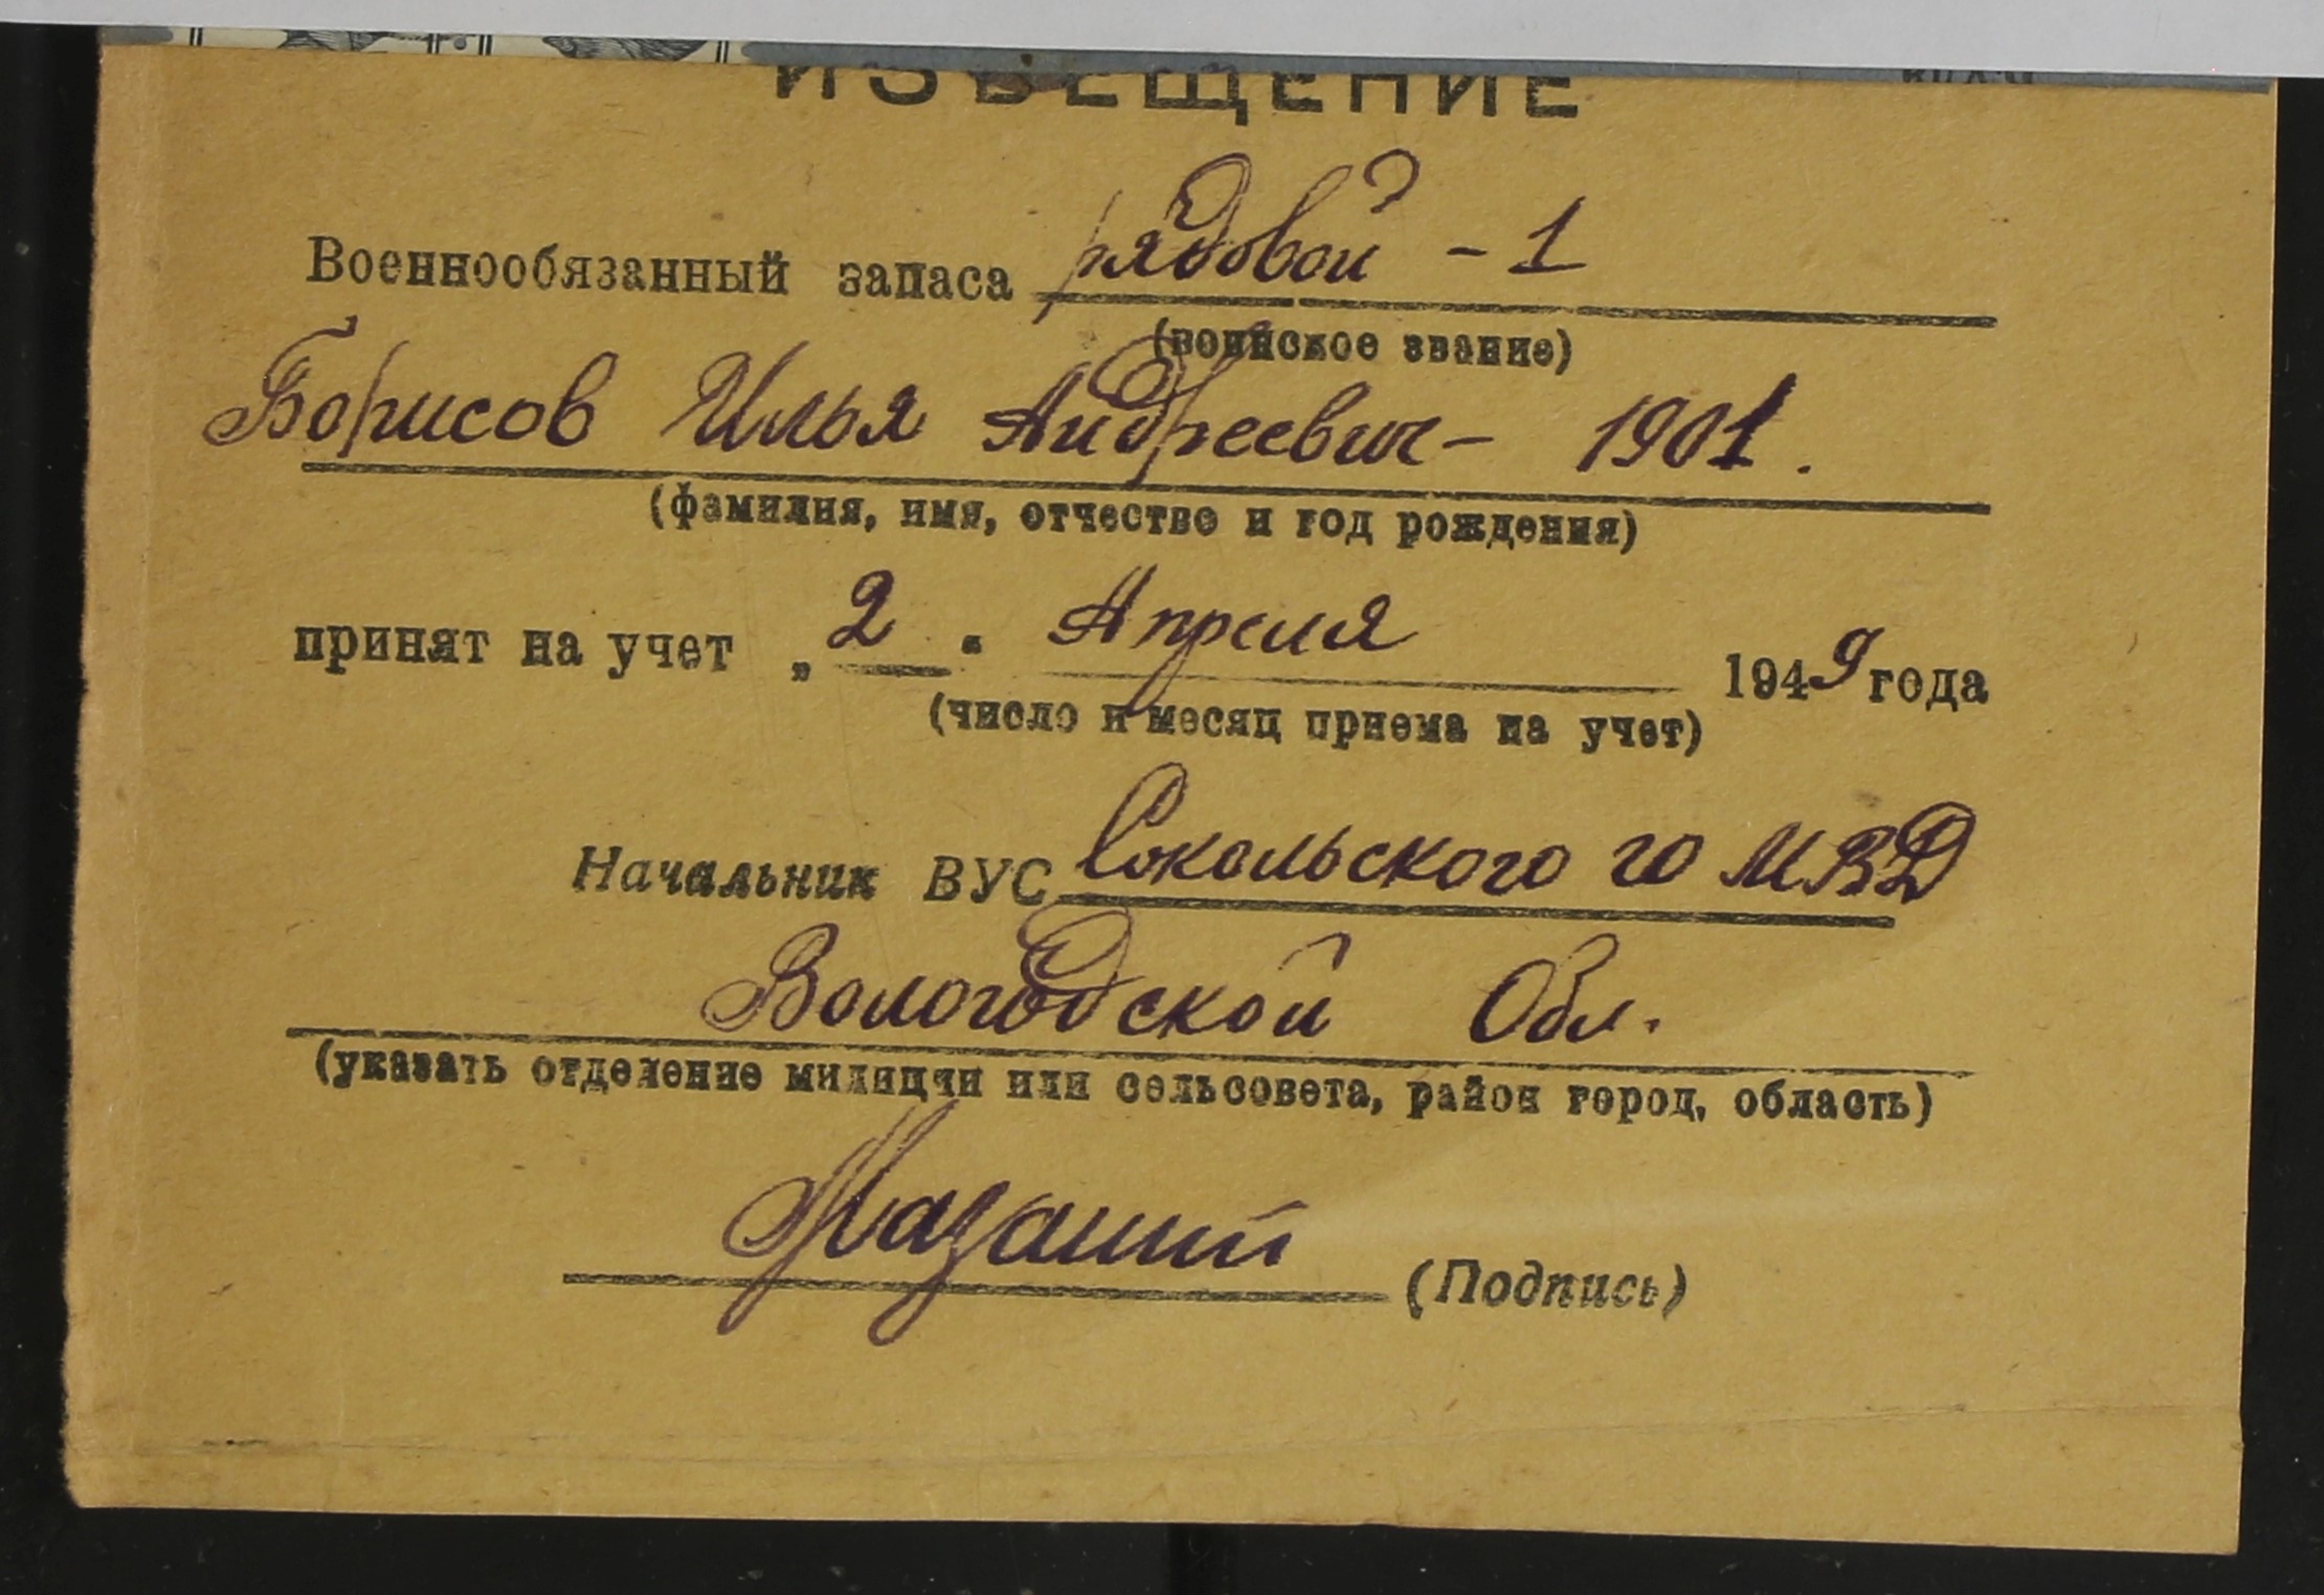 ИЗВЕЩЕНИЕ
Военнообязанный запаса рядовой - 1
(воинское звание)
Борисов Илья Андреевич - 1901.
(фамилия, имя, отчество и год рождения)
принят на учет „ 2 “ Апреля 1949 года
(число и месяц приема на учет)
Начальник ВУС Сокольского го МВД
Вологодской Обл.
(указать отделение милиции или сельсовета, район город, область)
(Подпись)